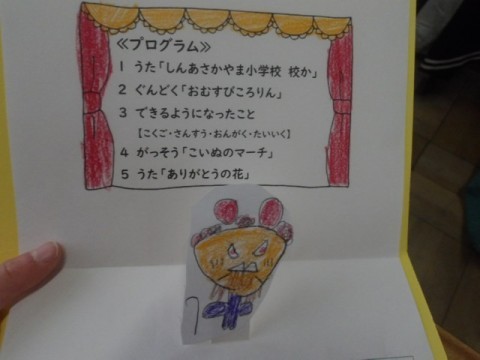 ≪プログラム≫
1 うた「しんあさかやま小学校 校か」
2 ぐんどく「おむすびころりん」
3 できるようになったこと
【こくご・さんすう・おんがく・たいいく】
4 がっそう「こいぬのマーチ」
5 うた「ありがとうの花」